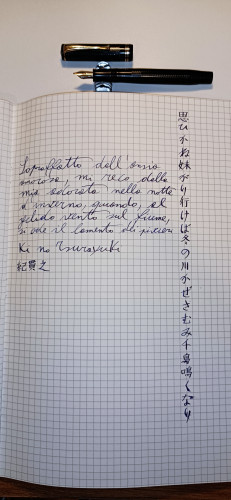 Sopraffatto dall'ansia
amorosa, mi reco dalla
mia adorata nella notte
d'inverno, quando, al
gelido vento sul fiume,
si ode il lamento dei pivieri
Ki no Tsurayuki
紀貫之
思ひかね妹がり行けば冬の川かぜさむみ千鳥鳴くなり